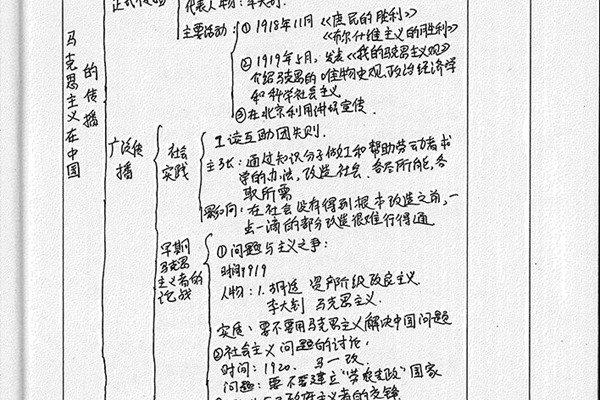 代表人物：李大钊.
主要活动：① 1918年11月《庶民的胜利》
《布尔什维主义的胜利》
② 1919年5月，发表《我的马克思主义观》
介绍马克思的唯物史观、政治经济学
和科学社会主义
③ 在北京利用讲坛宣传.
马克思主义在中国
的传播
广泛传播
社会实践
工读互助团失败.
主张：通过知识分子做工和帮助劳动者求
学的办法，改造社会. 各尽所能，各
取所需
影响：在社会没有得到根本改造之前，一
点一滴的部分改造很难行得通
早期马克思主义者的论战
① 问题与主义之争：
时间1919
人物：1. 胡适 资产阶级改良主义.
李大钊 马克思主义.
实质：要不要用马克思主义解决中国问题
②社会主义问题的讨论，
时间：1920.
问题：要不要建立“劳农专政”国家
主义者的交锋